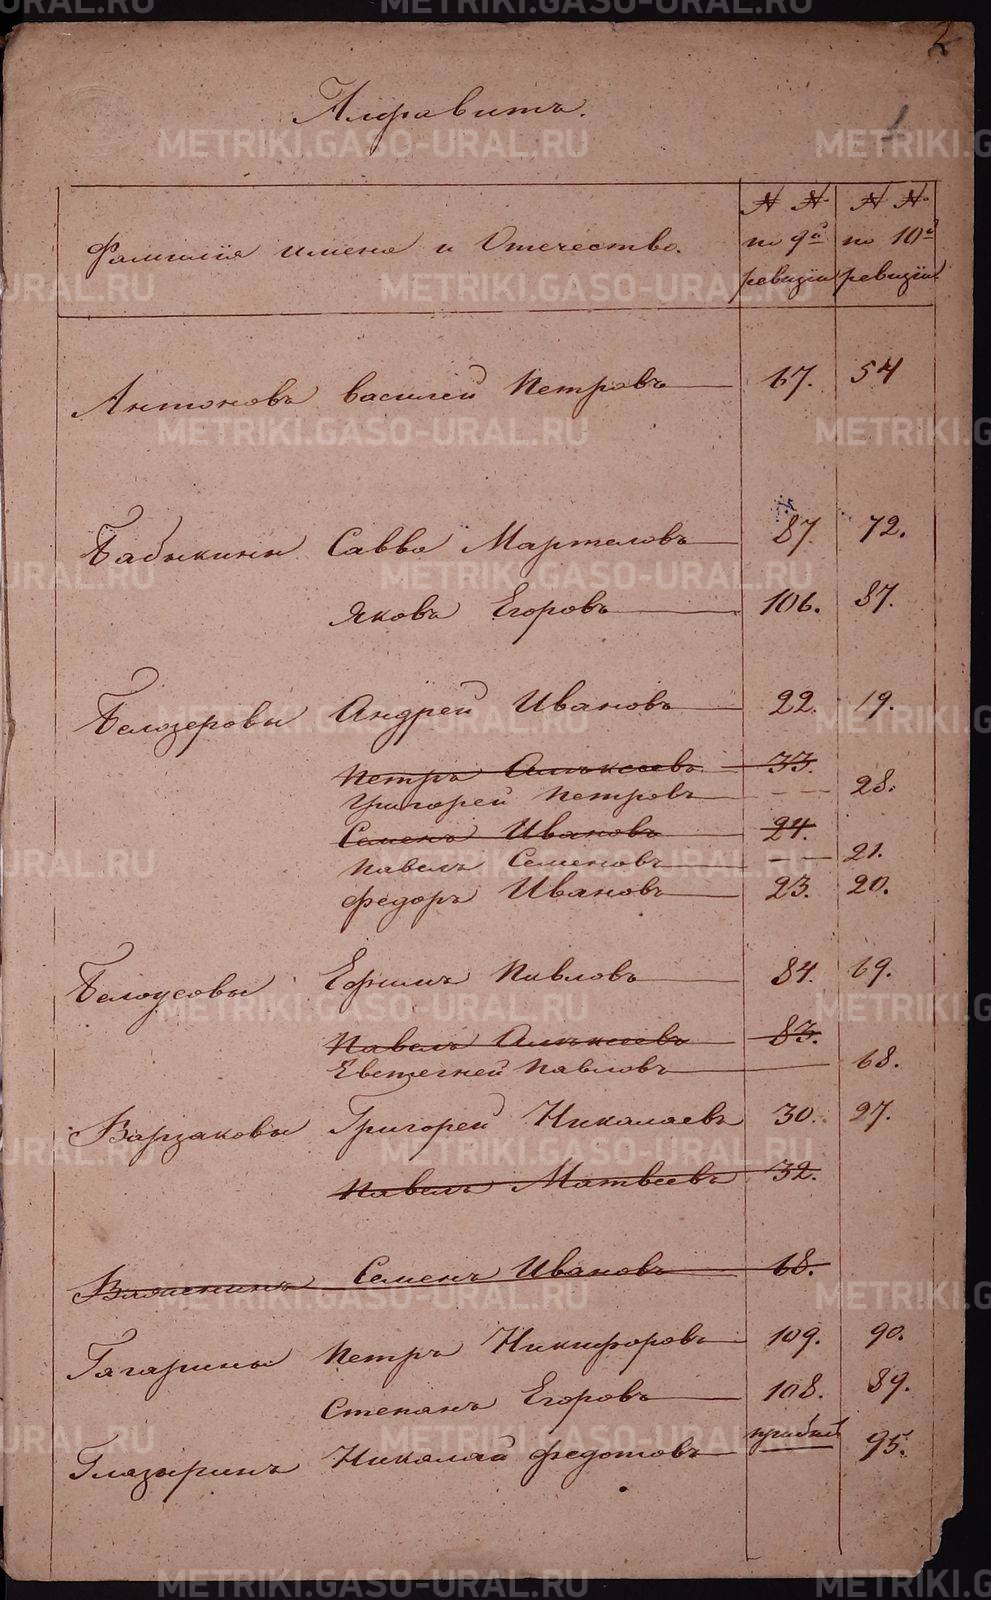 2
Алфавитъ.
1
Фамилія имена и Отечество.
№ №
по 9й
ревизіи
№ №
по 10й
ревизіи
Антоновъ Василей Петровъ 67. 54
Бабыкины Савва Мартемовъ 87. 72.
Яковъ Егоровъ 106. 87.
Белозеровы Андрей Ивановъ 22. 19.
Петръ Алексеевъ 33.
Григорей Петровъ — — 28.
Семенъ Ивановъ 24.
Павелъ Семеновъ — — 21.
Федоръ Ивановъ 23. 20.
Белоусовы Ефимъ Павловъ 84. 69.
Павелъ Алексеевъ 83.
Евстегней Павловъ 68.
Варзаковы Григорей Николаевъ 30. 27.
Павелъ Матвеевъ 32.
Семенъ Ивановъ 68.
Гагарины Петръ Никифоровъ 109. 90.
Степанъ Егоровъ 108. 89.
Глазыринъ Николай Федотовъ прибыл 95.
METRIKI.GASO-URAL.RU